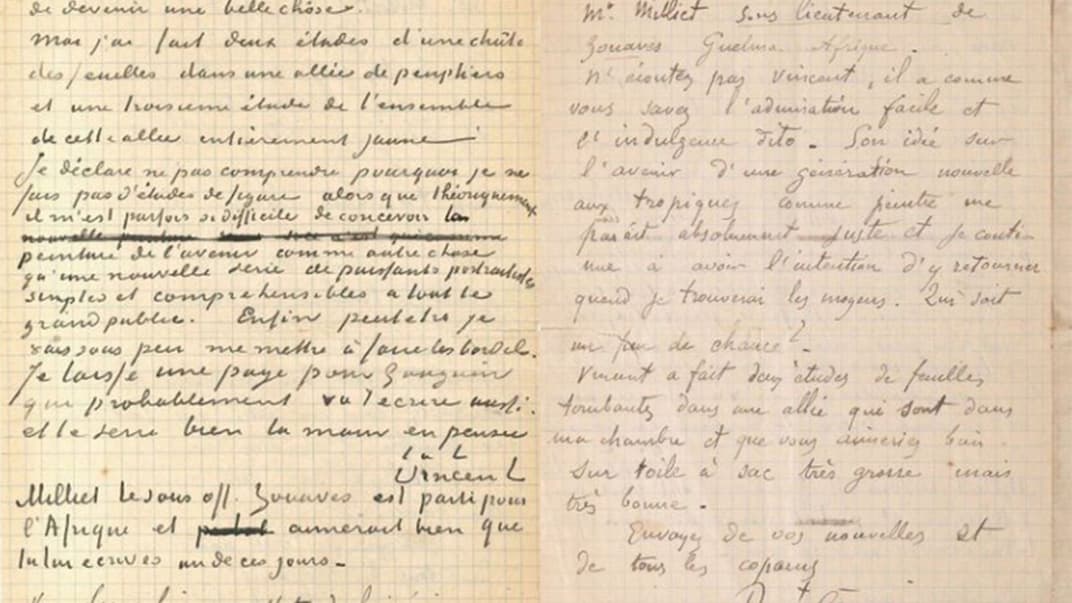 de devenir une belle chose.
Moi j'ai fait deux études d'une chûte
des feuilles dans une allée de peupliers
et une troisieme étude de l'ensemble
de cette allée entièrement jaune
Je déclare ne pas comprendre pourquoi je ne
fais pas d'études de figure alors que théoriquement
il m'est parfois si difficile de concevoir la
peinture de l'avenir comme autre chose
qu'une nouvelle serie de puissants portraitistes
simples et comprehensibles a tout le
grand public. Enfin peutetre je
vais sous peu me mettre à faire les bordels.
Je laisse une page pour Gauguin
qui probablement va t'ecrire aussi.
et te serre bien la main en pensée
t à t
Vincent
Milliet le sous off. Zouaves est parti pour
l'Afrique et aimerait bien que
tu lui ecrives un de ces jours.
Mr Milliet sous lieutenant de
Zouaves Guelma Afrique.
N'écoutez pas Vincent, il a comme
vous savez l'admiration facile et
l'indulgence dito. Son idée sur
l'avenir d'une génération nouvelle
aux tropiques comme peintre me
parait absolument juste et je conti-
nue à avoir l'intention d'y retourner
quand je trouverai les moyens. Qui sait
un peu de chance?
Vincent a fait deux études de feuilles
tombantes dans une allée qui sont dans
ma chambre et que vous aimeriez bien
sur toile à sac très grosse mais
très bonne.
Envoyez de vos nouvelles et
de tous les copains